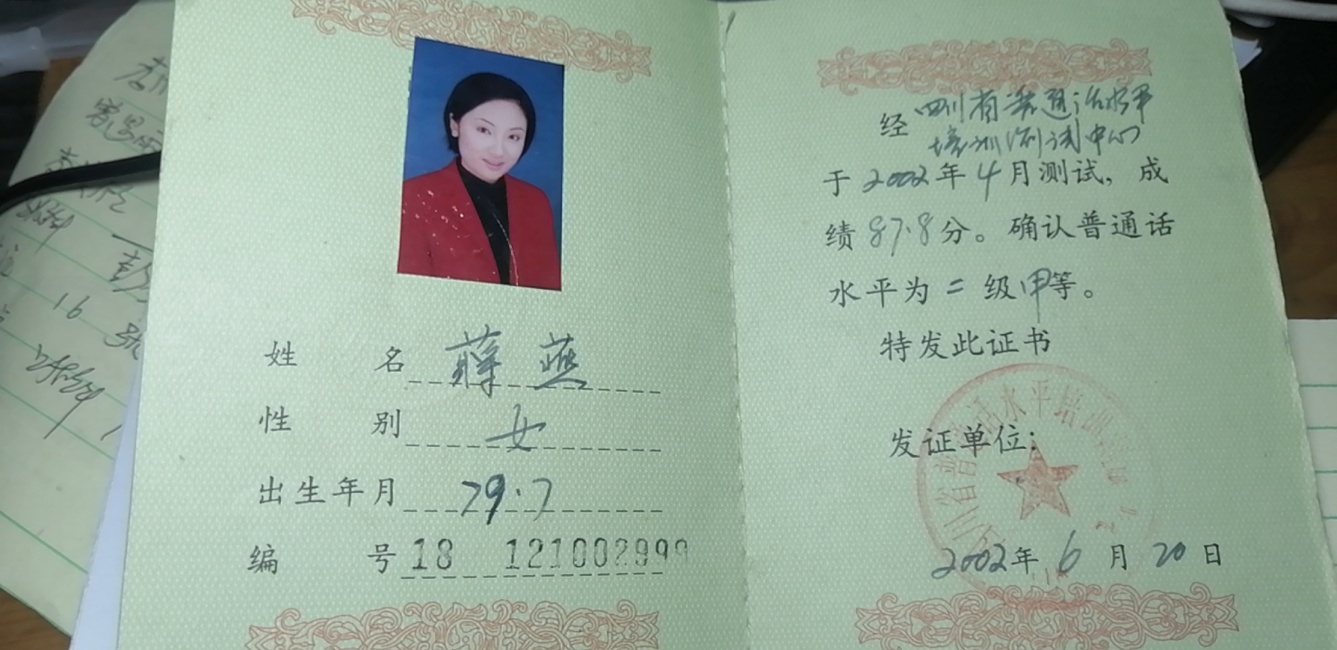 姓 名 蒋燕
性 别 女
出生年月 79.7
编 号 18 121002999
经 四川省普通话水平
培训测试中心
于 2002 年 4 月测试，成
绩 87.8 分。确认普通话
水平为 二 级 甲 等。
特发此证书
发证单位：
2002 年 6 月 20 日
16 号